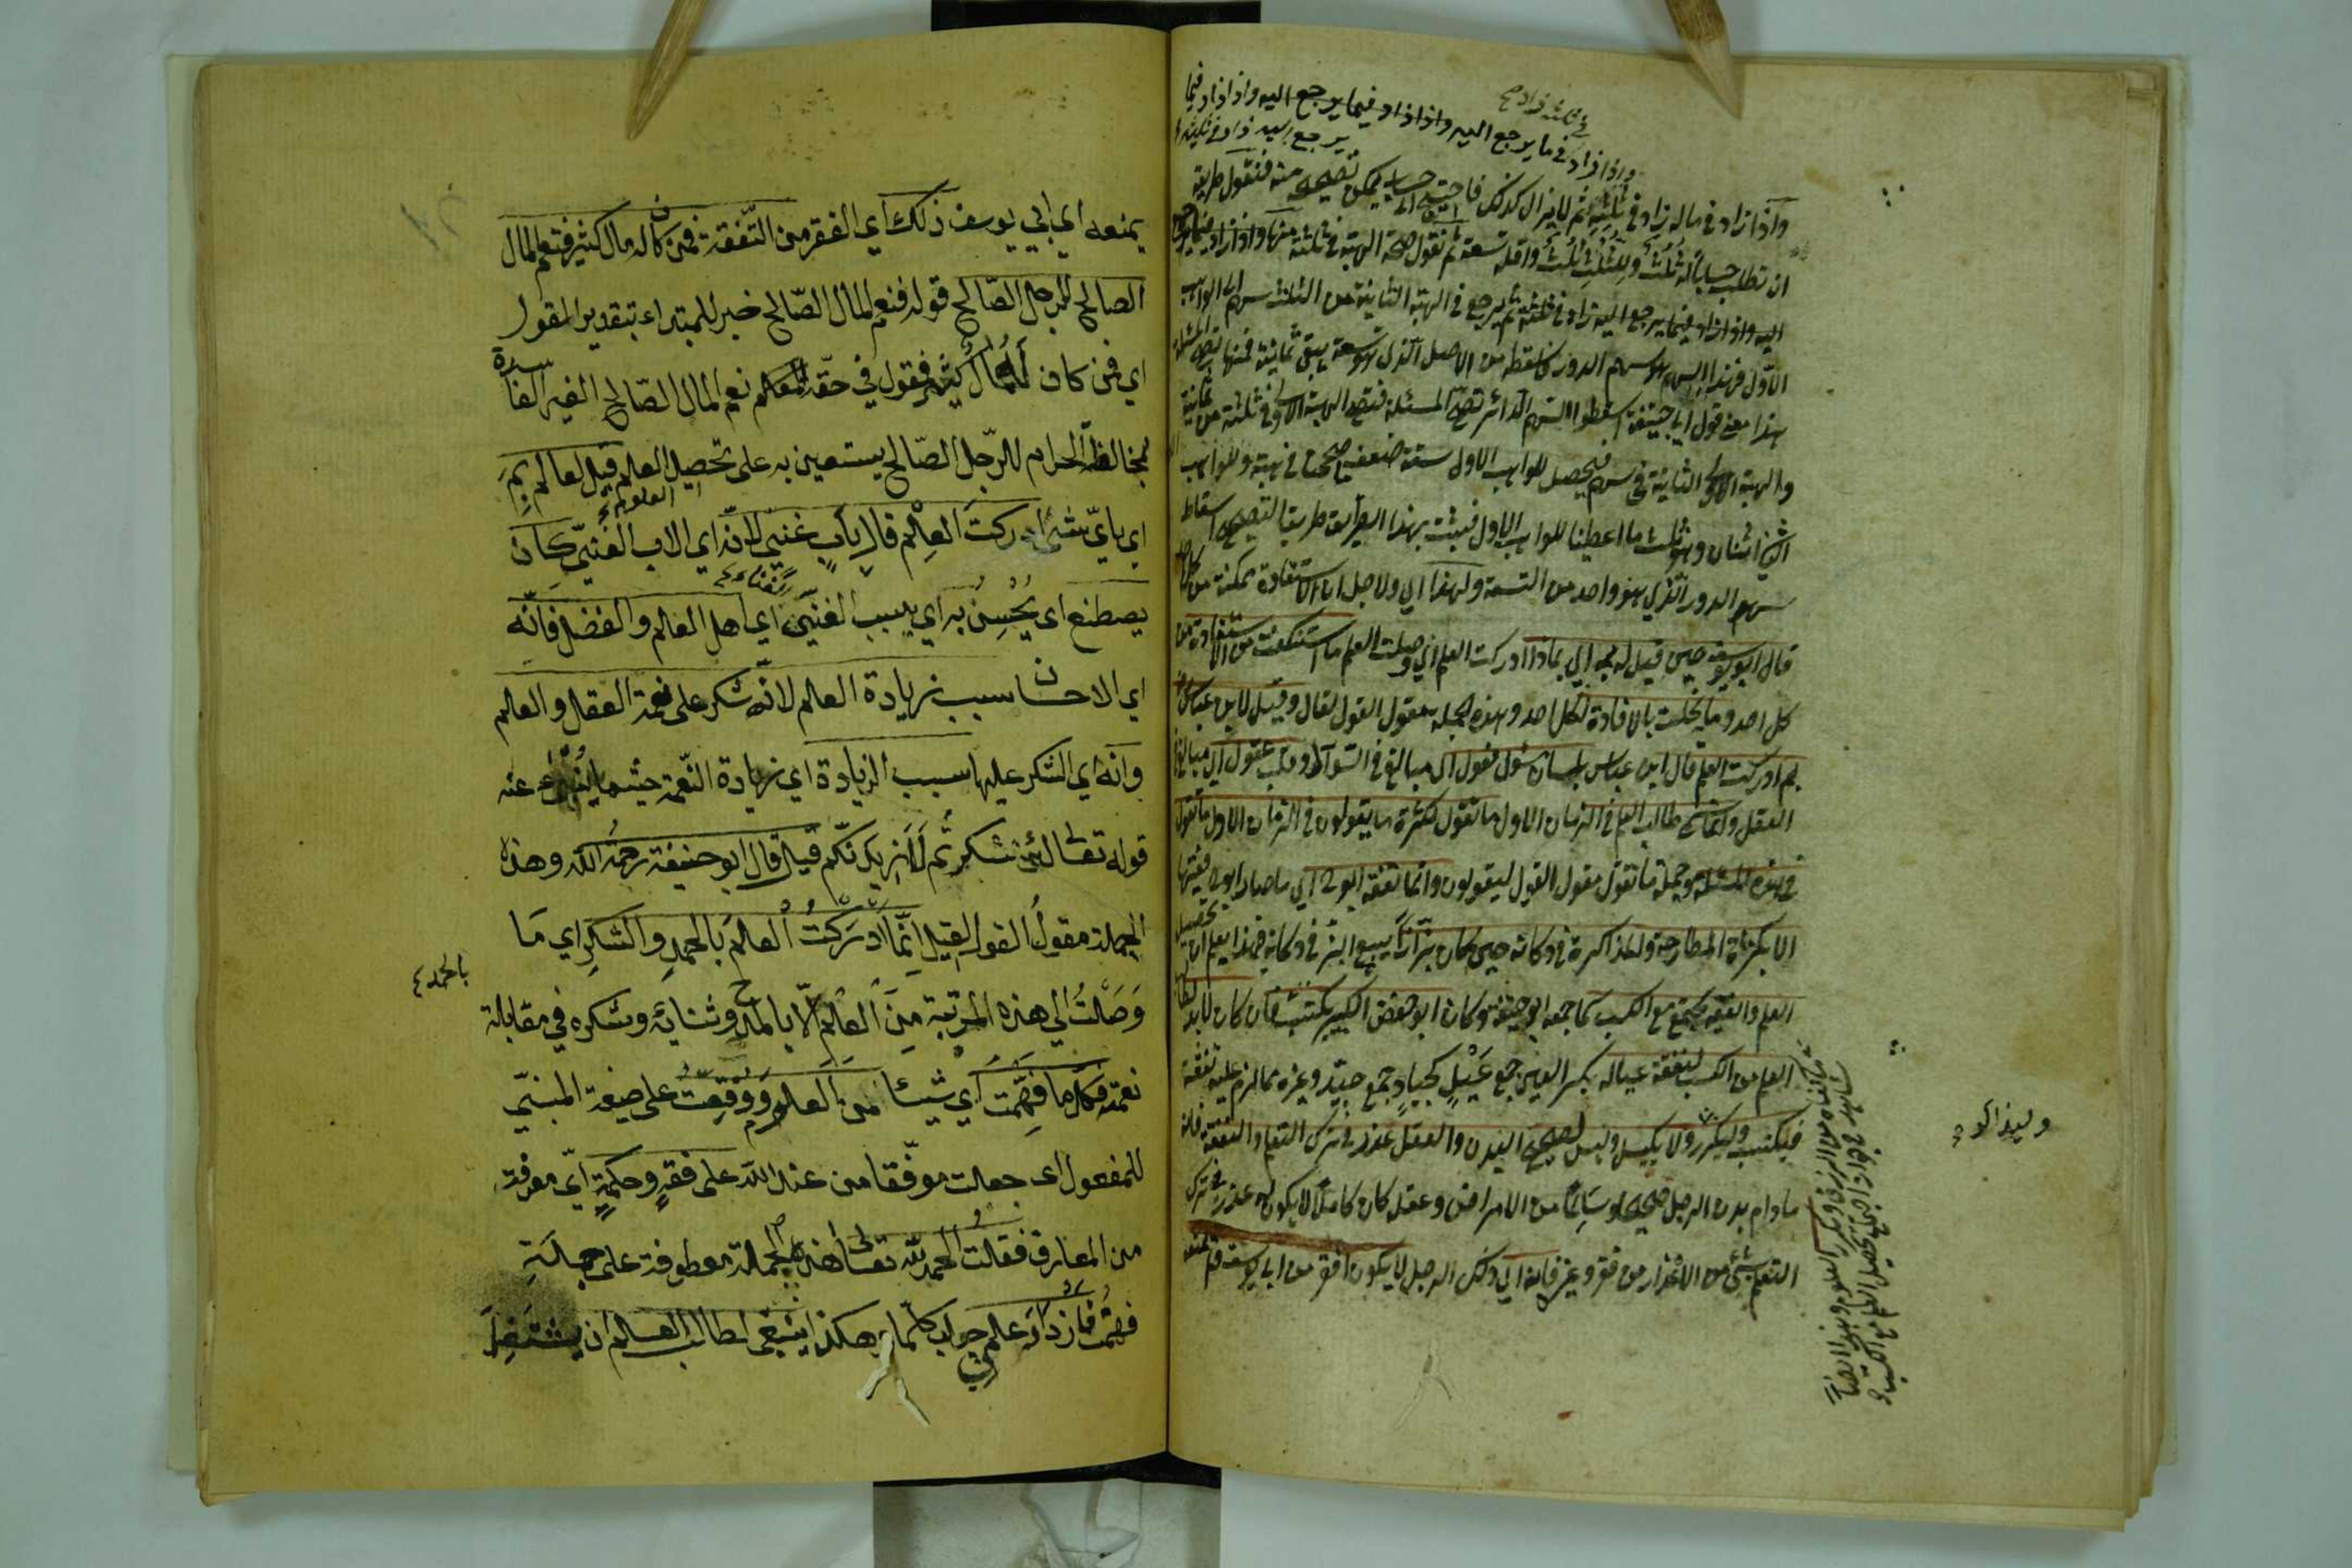 في ثلثه زاد صح
واذا زاد في ما يرجع اليه واذا زاد فيما يرجع اليه واذا زاد فيما
يرجع اليه زاد في ثلثه
واذا زاد في ماله زاد في ثلثه ثم لا يزال كذلك فاحتيج الى حساب يمكن تصحيحه منه فنقول طريقه
ان تطلب حسابا له ثلث ولثلثه ثلث واقله تسعة ثم نقول صحة الهبة في ثلثة منها واذا زاد فيما يرجع
اليه واذا زاد فيما يرجع اليه زاد في ثلثه ثم يرجع في الهبة الثانية من الثلث سهم الى الواهب
الاول فهذا السهم هو سهم الدور فاسقطه من الاصل الذي هو تسعة يبقى ثمانية فمنها تصح المسئلة
هذا معنى قول ابي حنيفة اسقطوا السهم الدائر تصح المسئلة فتصح الهبة الاولى في ثلثة من ثمانية
والهبة الثانية في سهم فيحصل للواهب الاول ستة ضعف ما صححنا في هبته وللواهب
الثاني اثنان وهو ثلث ما اعطينا للواهب الاول فيثبت بهذا الطريق طريق التصحيح اسقاط
سهم الدور الذي هو واحد من التسعة ولهذا اي ولاجل ان الاستفادة ممكنة من كل احد
قال ابو يوسف حين قيل له بم اي بماذا ادركت العلم اي وصلت العلم ما استنكفت من الاستفادة من
كل احد وما بخلت بالافادة لكل احد وهذه الجملة مقول القول لقال وقيل لابن عباس
بم ادركت العلم قال ابن عباس بلسان سؤل فعول اي مبالغ في السؤال وقلب عقول اي مبالغ في
العقل وانما سمي طالب العلم في الزمان الاول ما تقول لكثرة ما يقولون في الزمان الاول ما تقول
في هذه المسئلة وجملة ما تقول مقول القول ليقولون وانما تفقه ابو ح اي ما صار ابو ح فقيها
الا بكثرة المطارحة والمذاكرة في دكانه حين كان بزازا يبيع البز في دكانه فبهذا يعلم ان تحصيل
العلم والفقه يجتمع مع الكسب كما جمعه ابو حنيفة وكان ابو حفص الكبير يكتسب فان كان لا بد لطالب
العلم من الكسب لنفقة عياله بكسر العين جمع عيل كجياد جمع جيد وغيره مما لزم عليه نفقته
فليكتسب وليكرر ولا يكسل وليس لصحيح البدن والعقل عذر في ترك التعلم والتفقه فانه
مادام بدن الرجل صحيحا وسالما من الامراض وعقله كان كاملا لا يكون له عذر في ترك
التعلم بشئ من الاعذار من فقر وغيره فانه اي ذلك الرجل لا يكون افقر من ابي يوسف فلم يمنعه
وليذاكر
يمنعه اي ابي يوسف ذلك اي الفقر من التفقه فمن كان له مال كثير فنعم المال
الصالح للرجل الصالح قوله فنعم المال الصالح خبر للمبتداء بتقدير المقول
اي فمن كان له مال كثير فمقول في حقه نعم المال الصالح الغير الفاسدة
بمخالطة الحرام للرجل الصالح يستعين به على تحصيل العلم قيل لعالم بم
العلوم
اي باي شئ ادركت العلم قال باب غني لانه اي الاب الغني كان
يصطنع اي يحسن به اي بسبب الغني اي اهل العلم والفضل فانه
اي الاحسان سبب زيادة العلم لانه شكر على نعمة العقل والعلم
وانه اي الشكر عليها سبب الزيادة اي زيادة النعمة حيثما ينبئ عنه
قوله تعالى لئن شكرتم لازيدنكم قيل قال ابو حنيفة رحمه الله وهذه
الجملة مقول القول لقيل انما ادركت العلم بالحمد والشكر اي ما
بالحمد
وصلت الى هذه المرتبة من العلم الا بالحمد وثنائه وشكره في مقابلة
نعمه فكلما فهمت اي شيئا من العلوم ووفقت على صيغة المبني
للمفعول اي جعلت موفقا من عند الله على فقه وحكمة اي معرفة
من المعارف فقلت الحمد لله تعالى هذه الجملة معطوفة على جملة
فهمت فازداد علمي جواب كلما وهكذا ينبغي لطالب العلم ان يشتغل